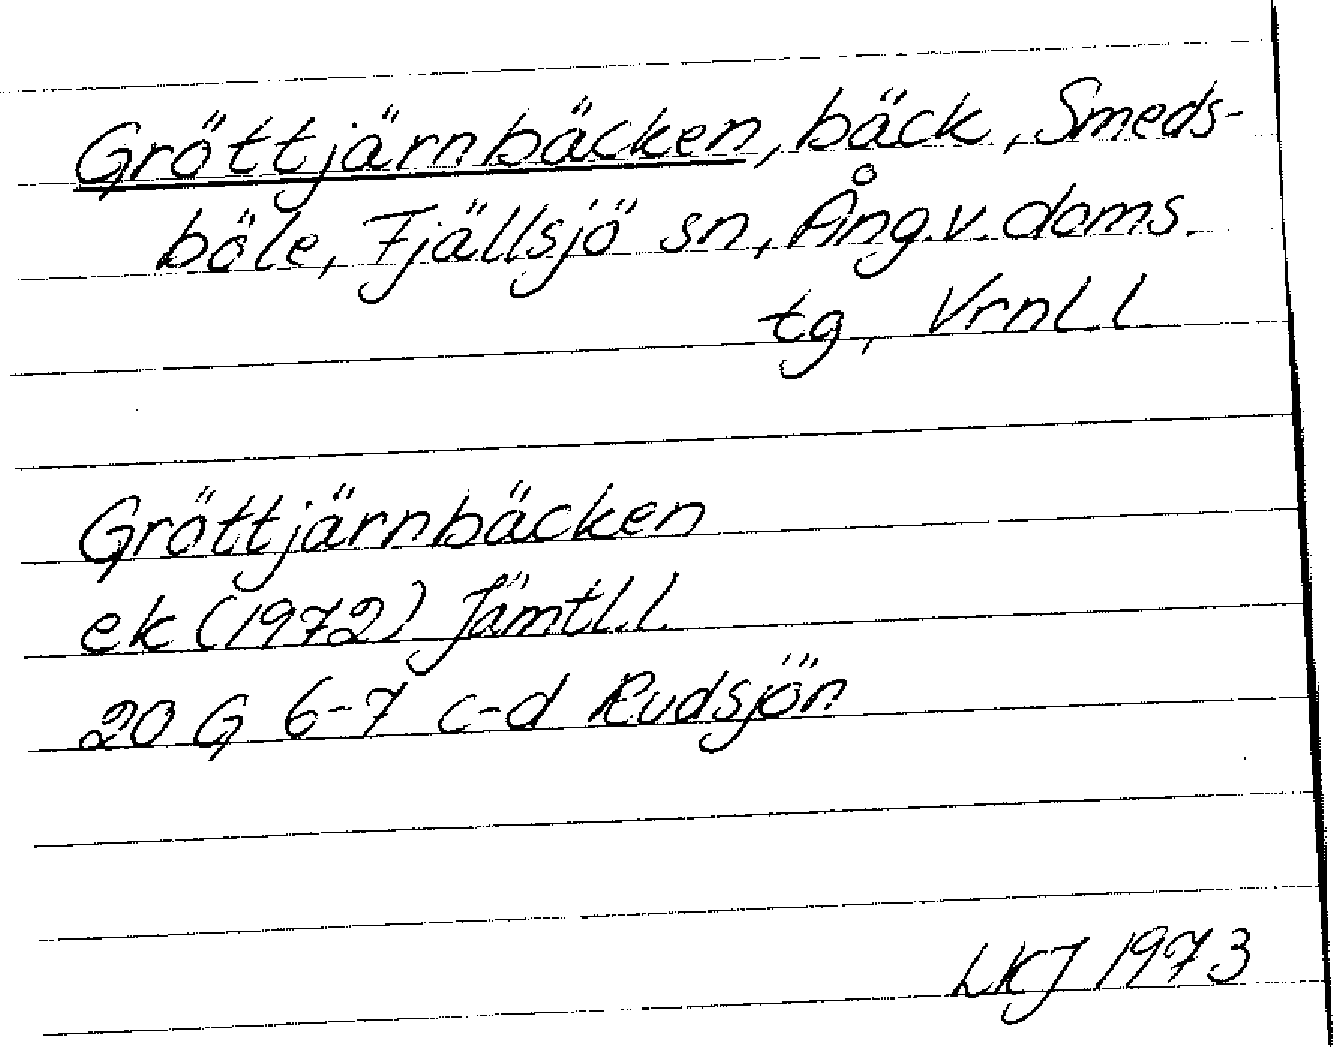 Gröttjärnbäcken, bäck, Smeds-
böle, Fjällsjö sn, Ång.v. doms.
tg, Vrnl l
Gröttjärnbäcken
ek (1972) Jämtl.l.
20 G 6-7 c-d Rudsjön
LKJ 1973